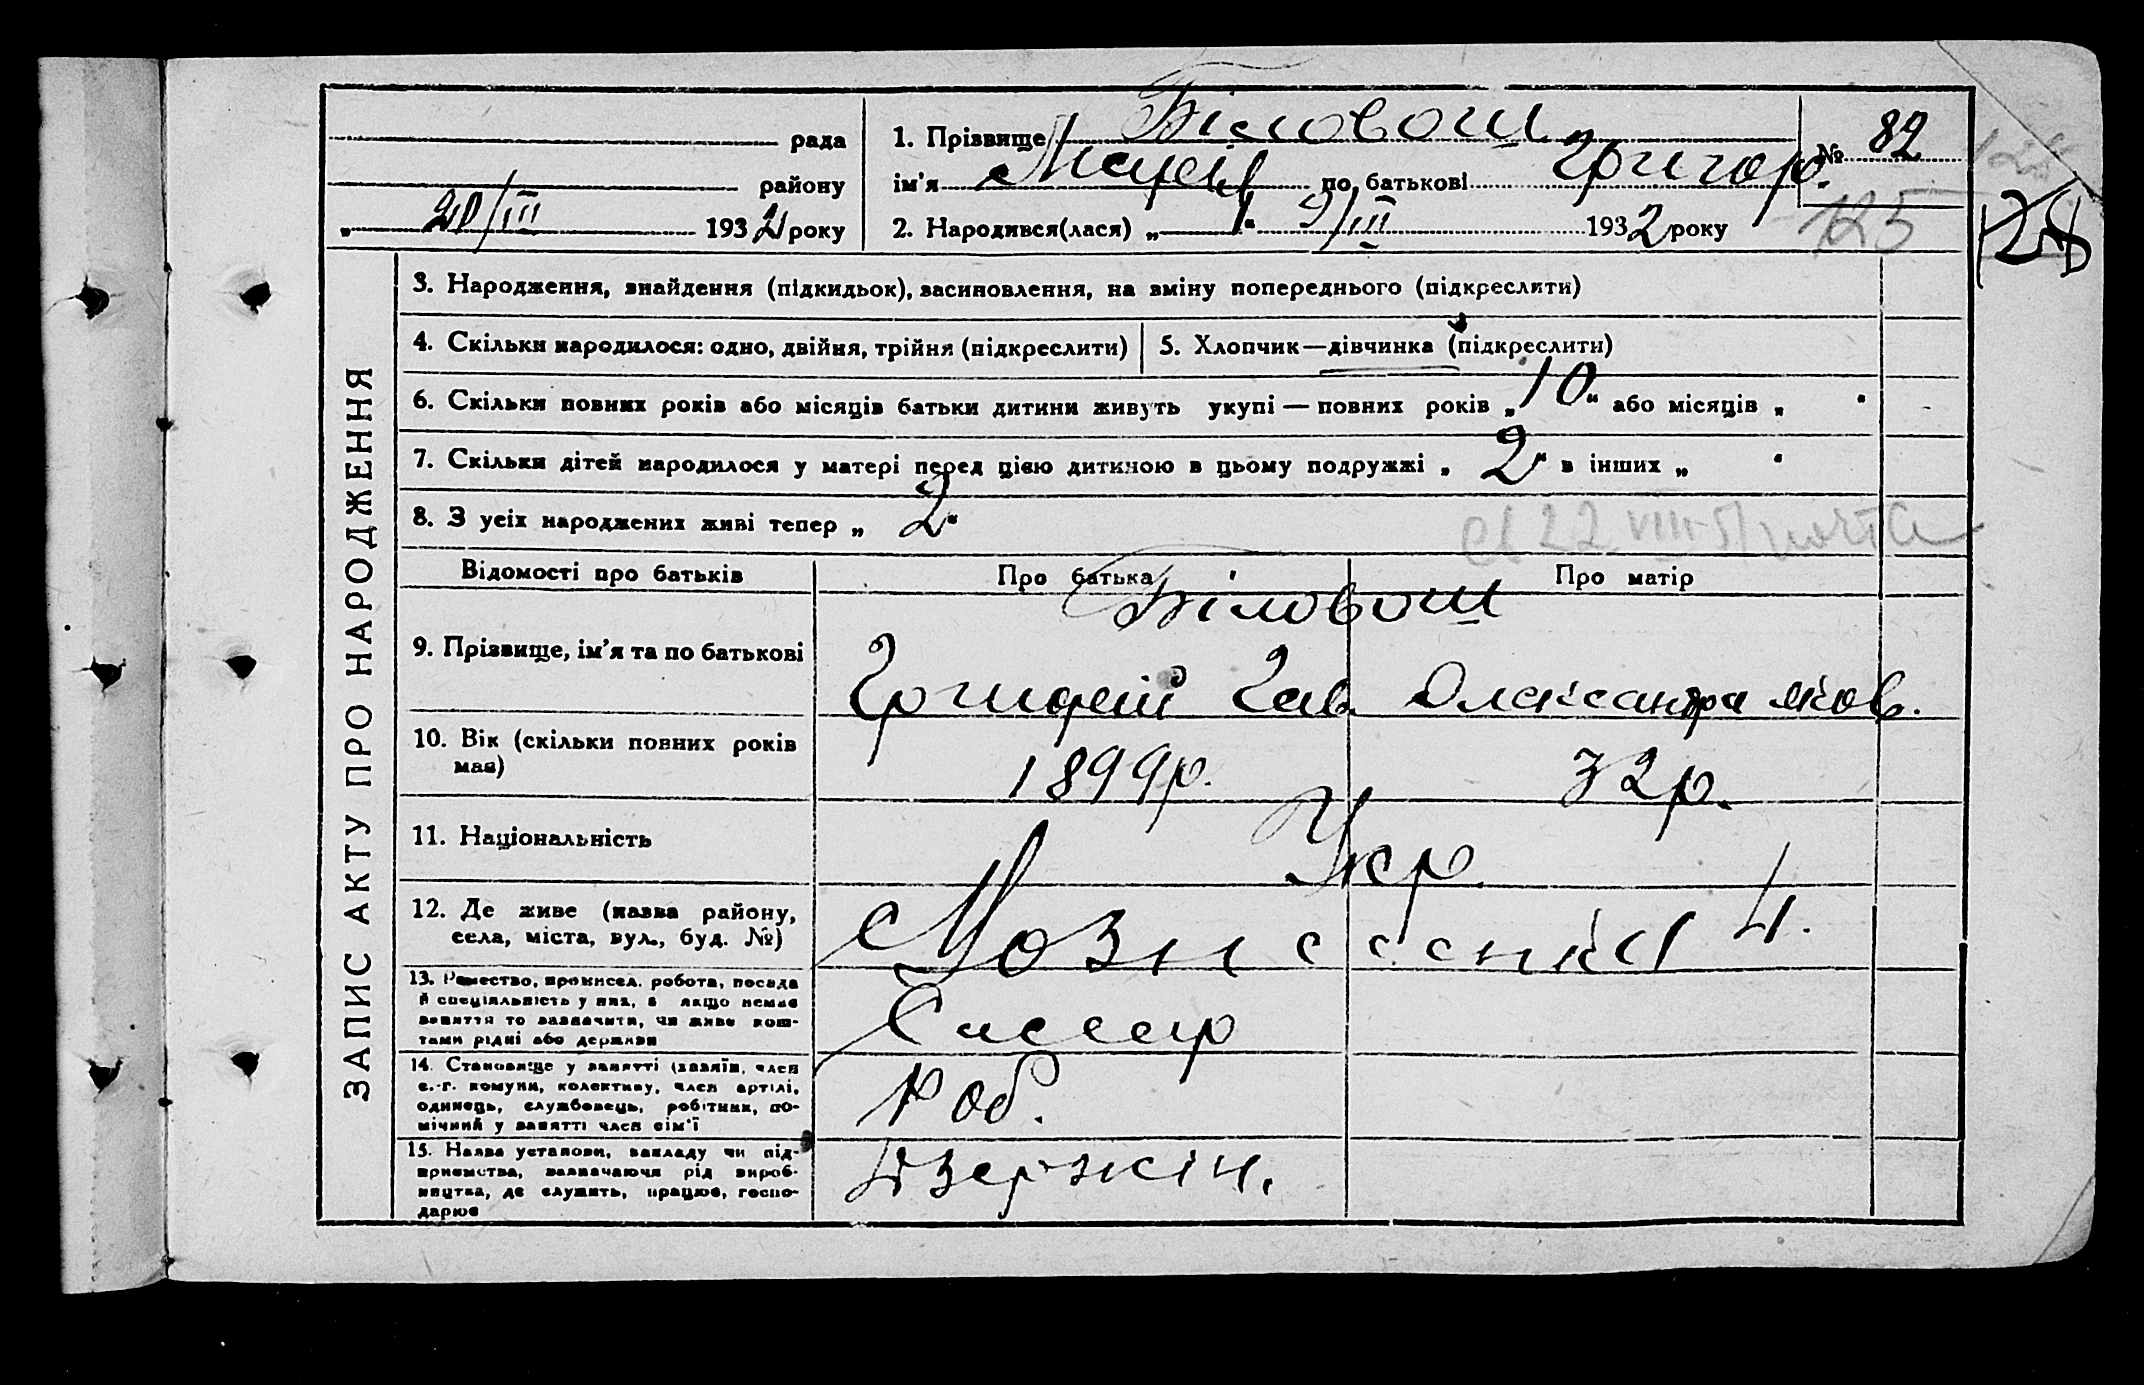 рада
району
„ 20/III 1932 року
1. Прізвище Біловош
ім'я Марія по батькові Григор.
2. Народився(лася) „ " 9/III 1932 року
№ 82
125
128
ЗАПИС АКТУ ПРО НАРОДЖЕННЯ
3. Народження, знайдення (підкидьок), засиновлення, на зміну попереднього (підкреслити)
4. Скільки народилося: одно, двійня, трійня (підкреслити) 5. Хлопчик—дівчинка (підкреслити)
6. Скільки повних років або місяців батьки дитини живуть укупі — повних років „ 10 " або місяців „ "
7. Скільки дітей народилося у матері перед цією дитиною в цьому подружжі „ 2 " в інших „ "
8. З усіх народжених живі тепер „ 2 "
22 VIII-51
Відомості про батьків Про батька Про матір
Біловош
9. Прізвище, ім'я та по батькові Григорій Гав. Олександра Яков.
10. Вік (скільки повних років
має) 1899р. 32р.
11. Національність Укр.
12. Де живе (назва району,
села, міста, вул., буд. №) 4.
13. Ремество, промисел, робота, посада
й спеціяльність у них, а якщо немає
заняття то зазначити, чи живе кош-
тами рідні або держави Слесар
14. Становище у занятті (хазяїн, член
с.-г. комуни, колективу, член артілі,
одинець, службовець, робітник, по-
мічний у занятті член сім'ї Роб.
15. Назва установи, закладу чи під-
приємства, зазначаючи рід вироб-
ництва, де служить, працює, госпо-
дарює Дзержін.